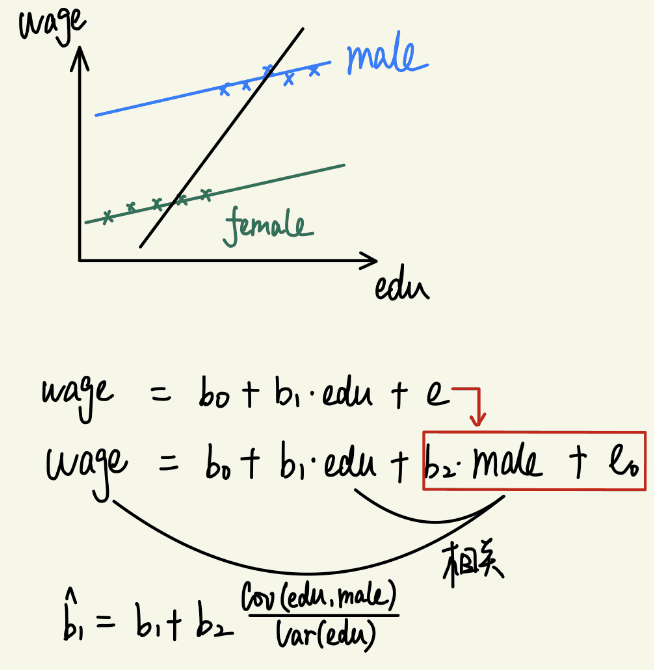 wage
male
female
edu
wage = b₀ + b₁·edu + e
wage = b₀ + b₁·edu + b₂·male + e₀
相关
b̂₁ = b₁ + b₂ Cov(edu,male)/Var(edu)